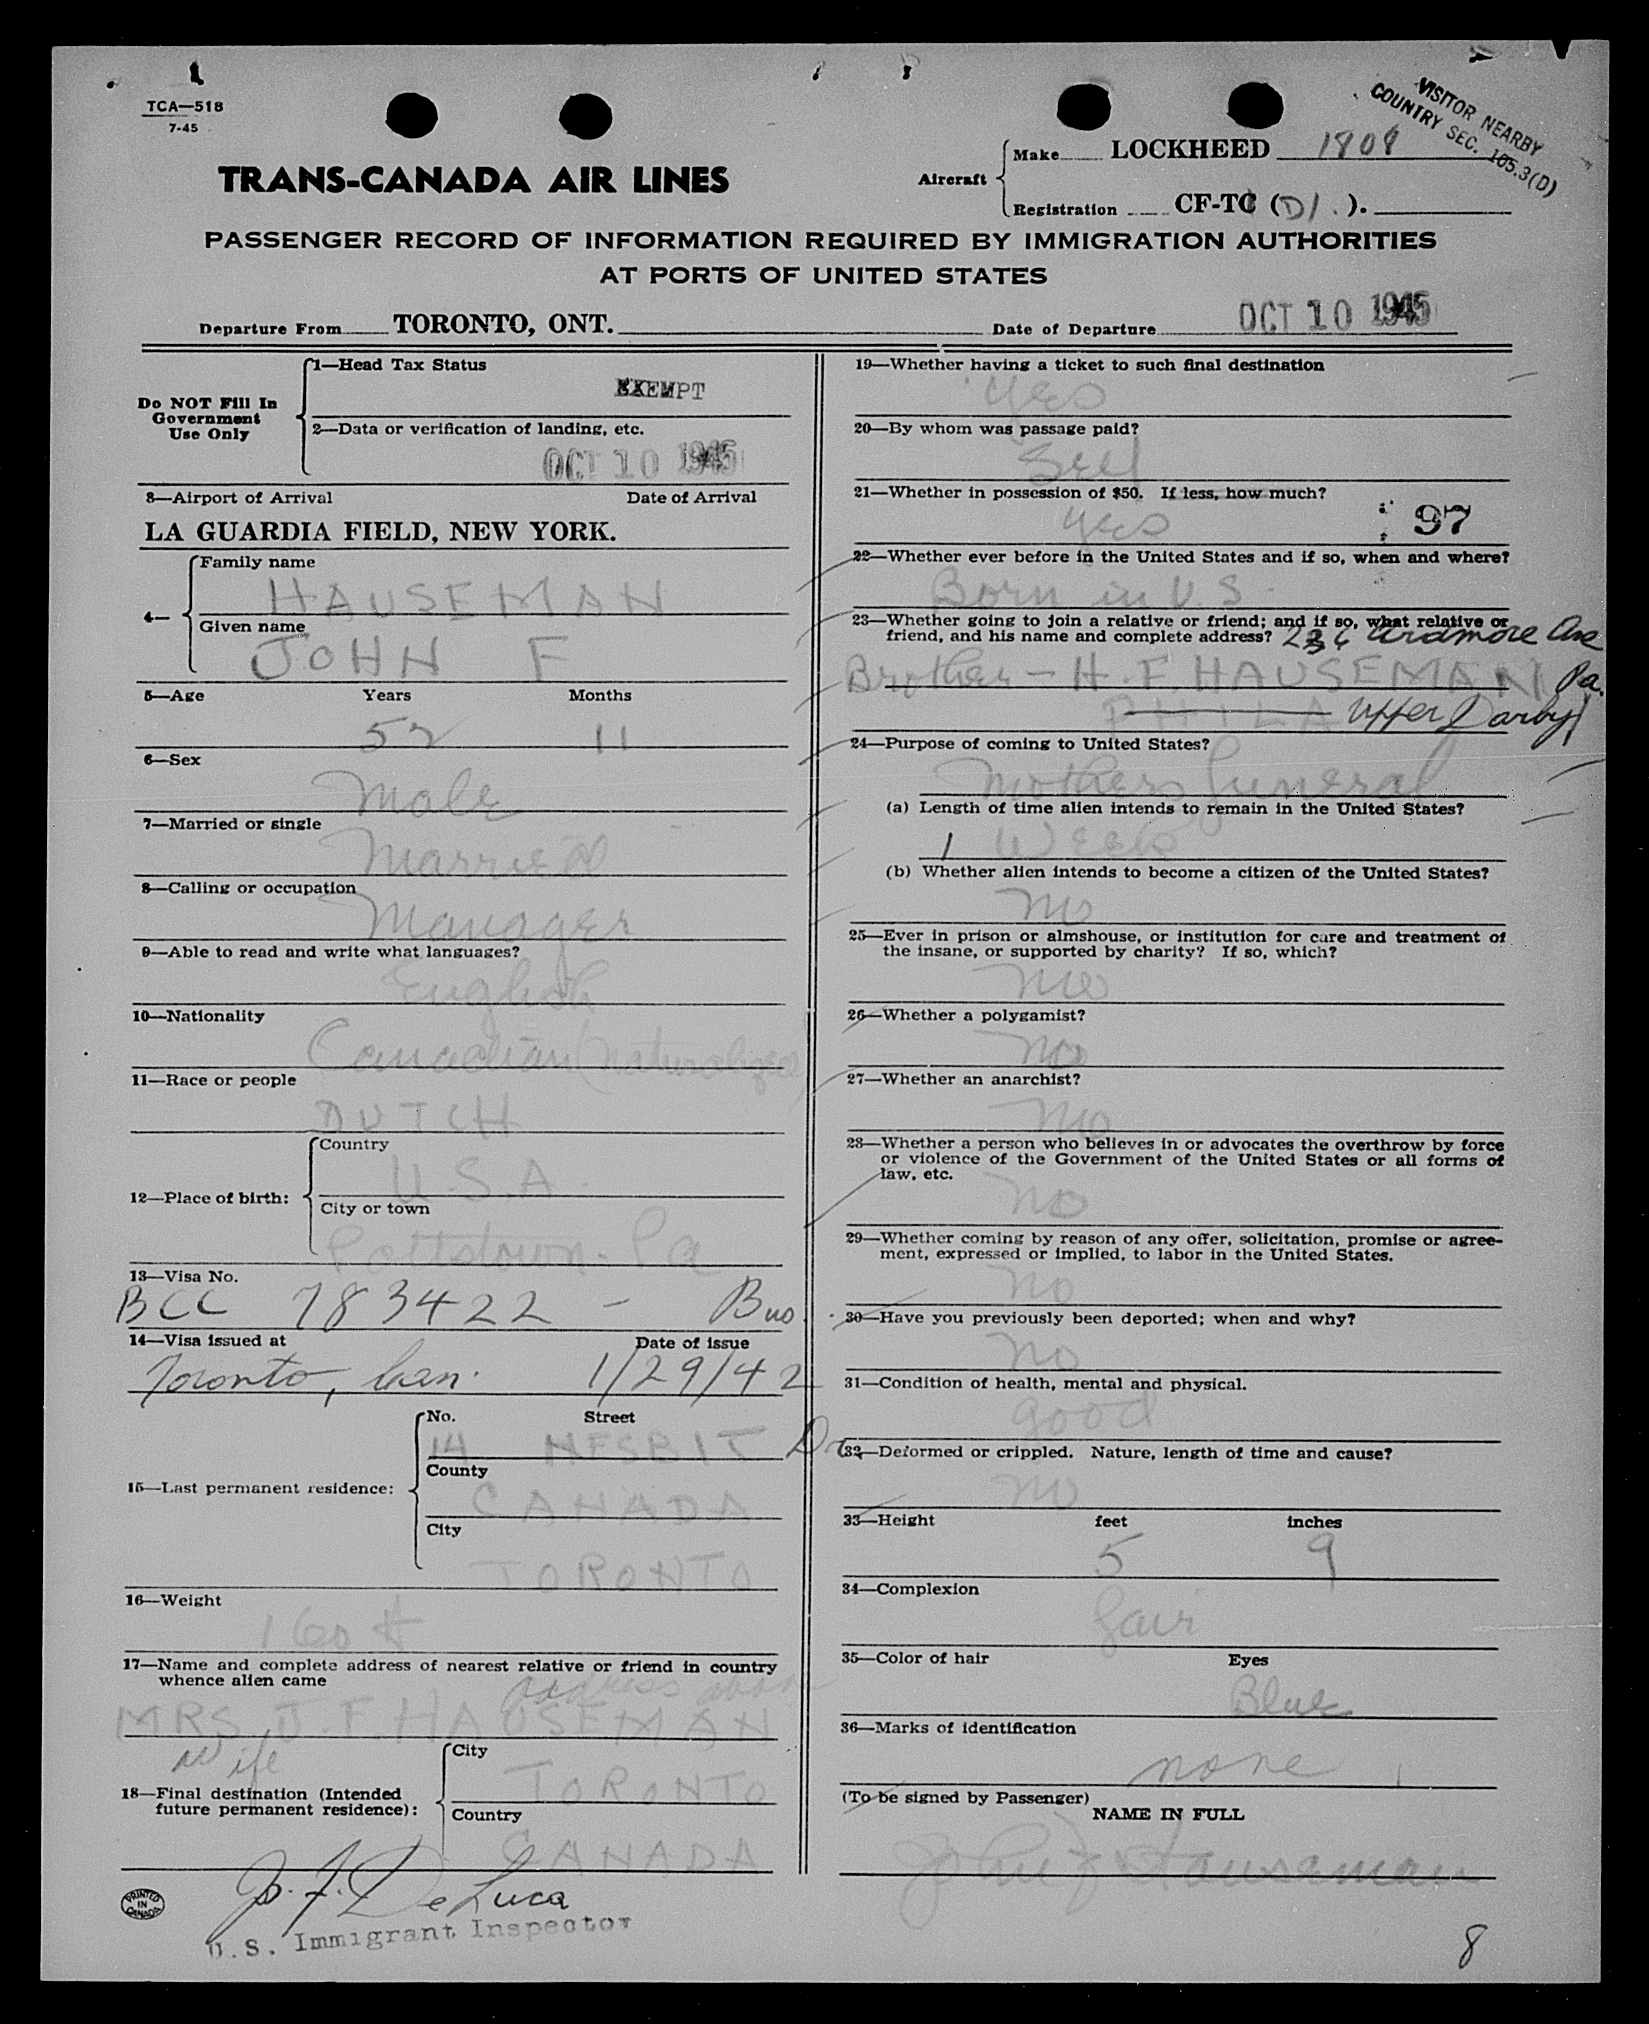 TCA—518
7-45
VISITOR NEARBY
COUNTRY SEC. 165.3(D)
TRANS-CANADA AIR LINES
Aircraft
Make LOCKHEED 1808
Registration CF-TC (D1.).
PASSENGER RECORD OF INFORMATION REQUIRED BY IMMIGRATION AUTHORITIES
AT PORTS OF UNITED STATES
Departure From TORONTO, ONT. Date of Departure OCT 10 1945
Do NOT Fill In
Government
Use Only
1—Head Tax Status
EXEMPT
2—Data or verification of landing, etc.
OCT 10 1945
3—Airport of Arrival Date of Arrival
LA GUARDIA FIELD, NEW YORK.
4—
Family name
HAUSEMAN
Given name
JOHN F
5—Age Years Months
52 11
6—Sex
Male
7—Married or single
Married
8—Calling or occupation
Manager
9—Able to read and write what languages?
English
10—Nationality
Canadian (naturalized)
11—Race or people
DUTCH
12—Place of birth:
Country
U.S.A.
City or town
Pottstown - Pa
13—Visa No.
BCC 783422 – Bus.
14—Visa issued at Date of issue
Toronto, Can. 1/29/42
15—Last permanent residence:
No. Street
14 NESBIT Dr
County
CANADA
City
TORONTO
16—Weight
160 #
17—Name and complete address of nearest relative or friend in country
whence alien came
address above
MRS. J.F. HAUSEMAN
Wife
18—Final destination (Intended
future permanent residence):
City
TORONTO
Country
CANADA
PRINTED
IN
CANADA
J. F. De Luca
U.S. Immigrant Inspector
19—Whether having a ticket to such final destination
yes
20—By whom was passage paid?
Self
21—Whether in possession of $50. If less, how much?
yes 97
22—Whether ever before in the United States and if so, when and where?
Born in U.S.
23—Whether going to join a relative or friend; and if so, what relative or
friend, and his name and complete address? 236 Ardmore Ave
Brother – H.F. HAUSEMAN Pa.
PHILA Upper Darby
24—Purpose of coming to United States?
Mothers funeral
(a) Length of time alien intends to remain in the United States?
1 Week
(b) Whether alien intends to become a citizen of the United States?
no
25—Ever in prison or almshouse, or institution for care and treatment of
the insane, or supported by charity? If so, which?
no
26—Whether a polygamist?
no
27—Whether an anarchist?
no
28—Whether a person who believes in or advocates the overthrow by force
or violence of the Government of the United States or all forms of
law, etc.
no
29—Whether coming by reason of any offer, solicitation, promise or agree-
ment, expressed or implied, to labor in the United States.
no
30—Have you previously been deported; when and why?
no
31—Condition of health, mental and physical.
good
32—Deformed or crippled. Nature, length of time and cause?
no
33—Height feet inches
5 9
34—Complexion
fair
35—Color of hair Eyes
Blue
36—Marks of identification
none
(To be signed by Passenger)
NAME IN FULL
John F Hauseman
8